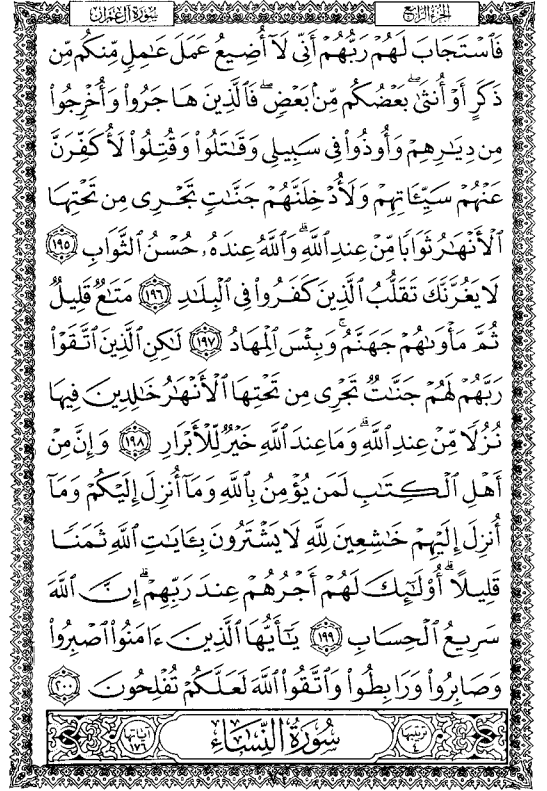 الجزء الرابع
سورة آل عمران
فَٱسۡتَجَابَ لَهُمۡ رَبُّهُمۡ أَنِّي لَآ أُضِيعُ عَمَلَ عَٰمِلٖ مِّنكُم مِّن
ذَكَرٍ أَوۡ أُنثَىٰۖ بَعۡضُكُم مِّنۢ بَعۡضٖۖ فَٱلَّذِينَ هَاجَرُواْ وَأُخۡرِجُواْ
مِن دِيَٰرِهِمۡ وَأُوذُواْ فِي سَبِيلِي وَقَٰتَلُواْ وَقُتِلُواْ لَأُكَفِّرَنَّ
عَنۡهُمۡ سَيِّـَٔاتِهِمۡ وَلَأُدۡخِلَنَّهُمۡ جَنَّٰتٖ تَجۡرِي مِن تَحۡتِهَا
ٱلۡأَنۡهَٰرُ ثَوَابٗا مِّنۡ عِندِ ٱللَّهِۚ وَٱللَّهُ عِندَهُۥ حُسۡنُ ٱلثَّوَابِ ١٩٥
لَا يَغُرَّنَّكَ تَقَلُّبُ ٱلَّذِينَ كَفَرُواْ فِي ٱلۡبِلَٰدِ ١٩٦ مَتَٰعٞ قَلِيلٞ
ثُمَّ مَأۡوَىٰهُمۡ جَهَنَّمُۖ وَبِئۡسَ ٱلۡمِهَادُ ١٩٧ لَٰكِنِ ٱلَّذِينَ ٱتَّقَوۡاْ
رَبَّهُمۡ لَهُمۡ جَنَّٰتٞ تَجۡرِي مِن تَحۡتِهَا ٱلۡأَنۡهَٰرُ خَٰلِدِينَ فِيهَا
نُزُلٗا مِّنۡ عِندِ ٱللَّهِۗ وَمَا عِندَ ٱللَّهِ خَيۡرٞ لِّلۡأَبۡرَارِ ١٩٨ وَإِنَّ مِنۡ
أَهۡلِ ٱلۡكِتَٰبِ لَمَن يُؤۡمِنُ بِٱللَّهِ وَمَآ أُنزِلَ إِلَيۡكُمۡ وَمَآ
أُنزِلَ إِلَيۡهِمۡ خَٰشِعِينَ لِلَّهِ لَا يَشۡتَرُونَ بِـَٔايَٰتِ ٱللَّهِ ثَمَنٗا
قَلِيلًاۚ أُوْلَٰٓئِكَ لَهُمۡ أَجۡرُهُمۡ عِندَ رَبِّهِمۡۗ إِنَّ ٱللَّهَ
سَرِيعُ ٱلۡحِسَابِ ١٩٩ يَٰٓأَيُّهَا ٱلَّذِينَ ءَامَنُواْ ٱصۡبِرُواْ
وَصَابِرُواْ وَرَابِطُواْ وَٱتَّقُواْ ٱللَّهَ لَعَلَّكُمۡ تُفۡلِحُونَ ٢٠٠
ترتيبها ٤ سُورَةُ النِّسَاءِ آياتها ١٧٦
٧٦